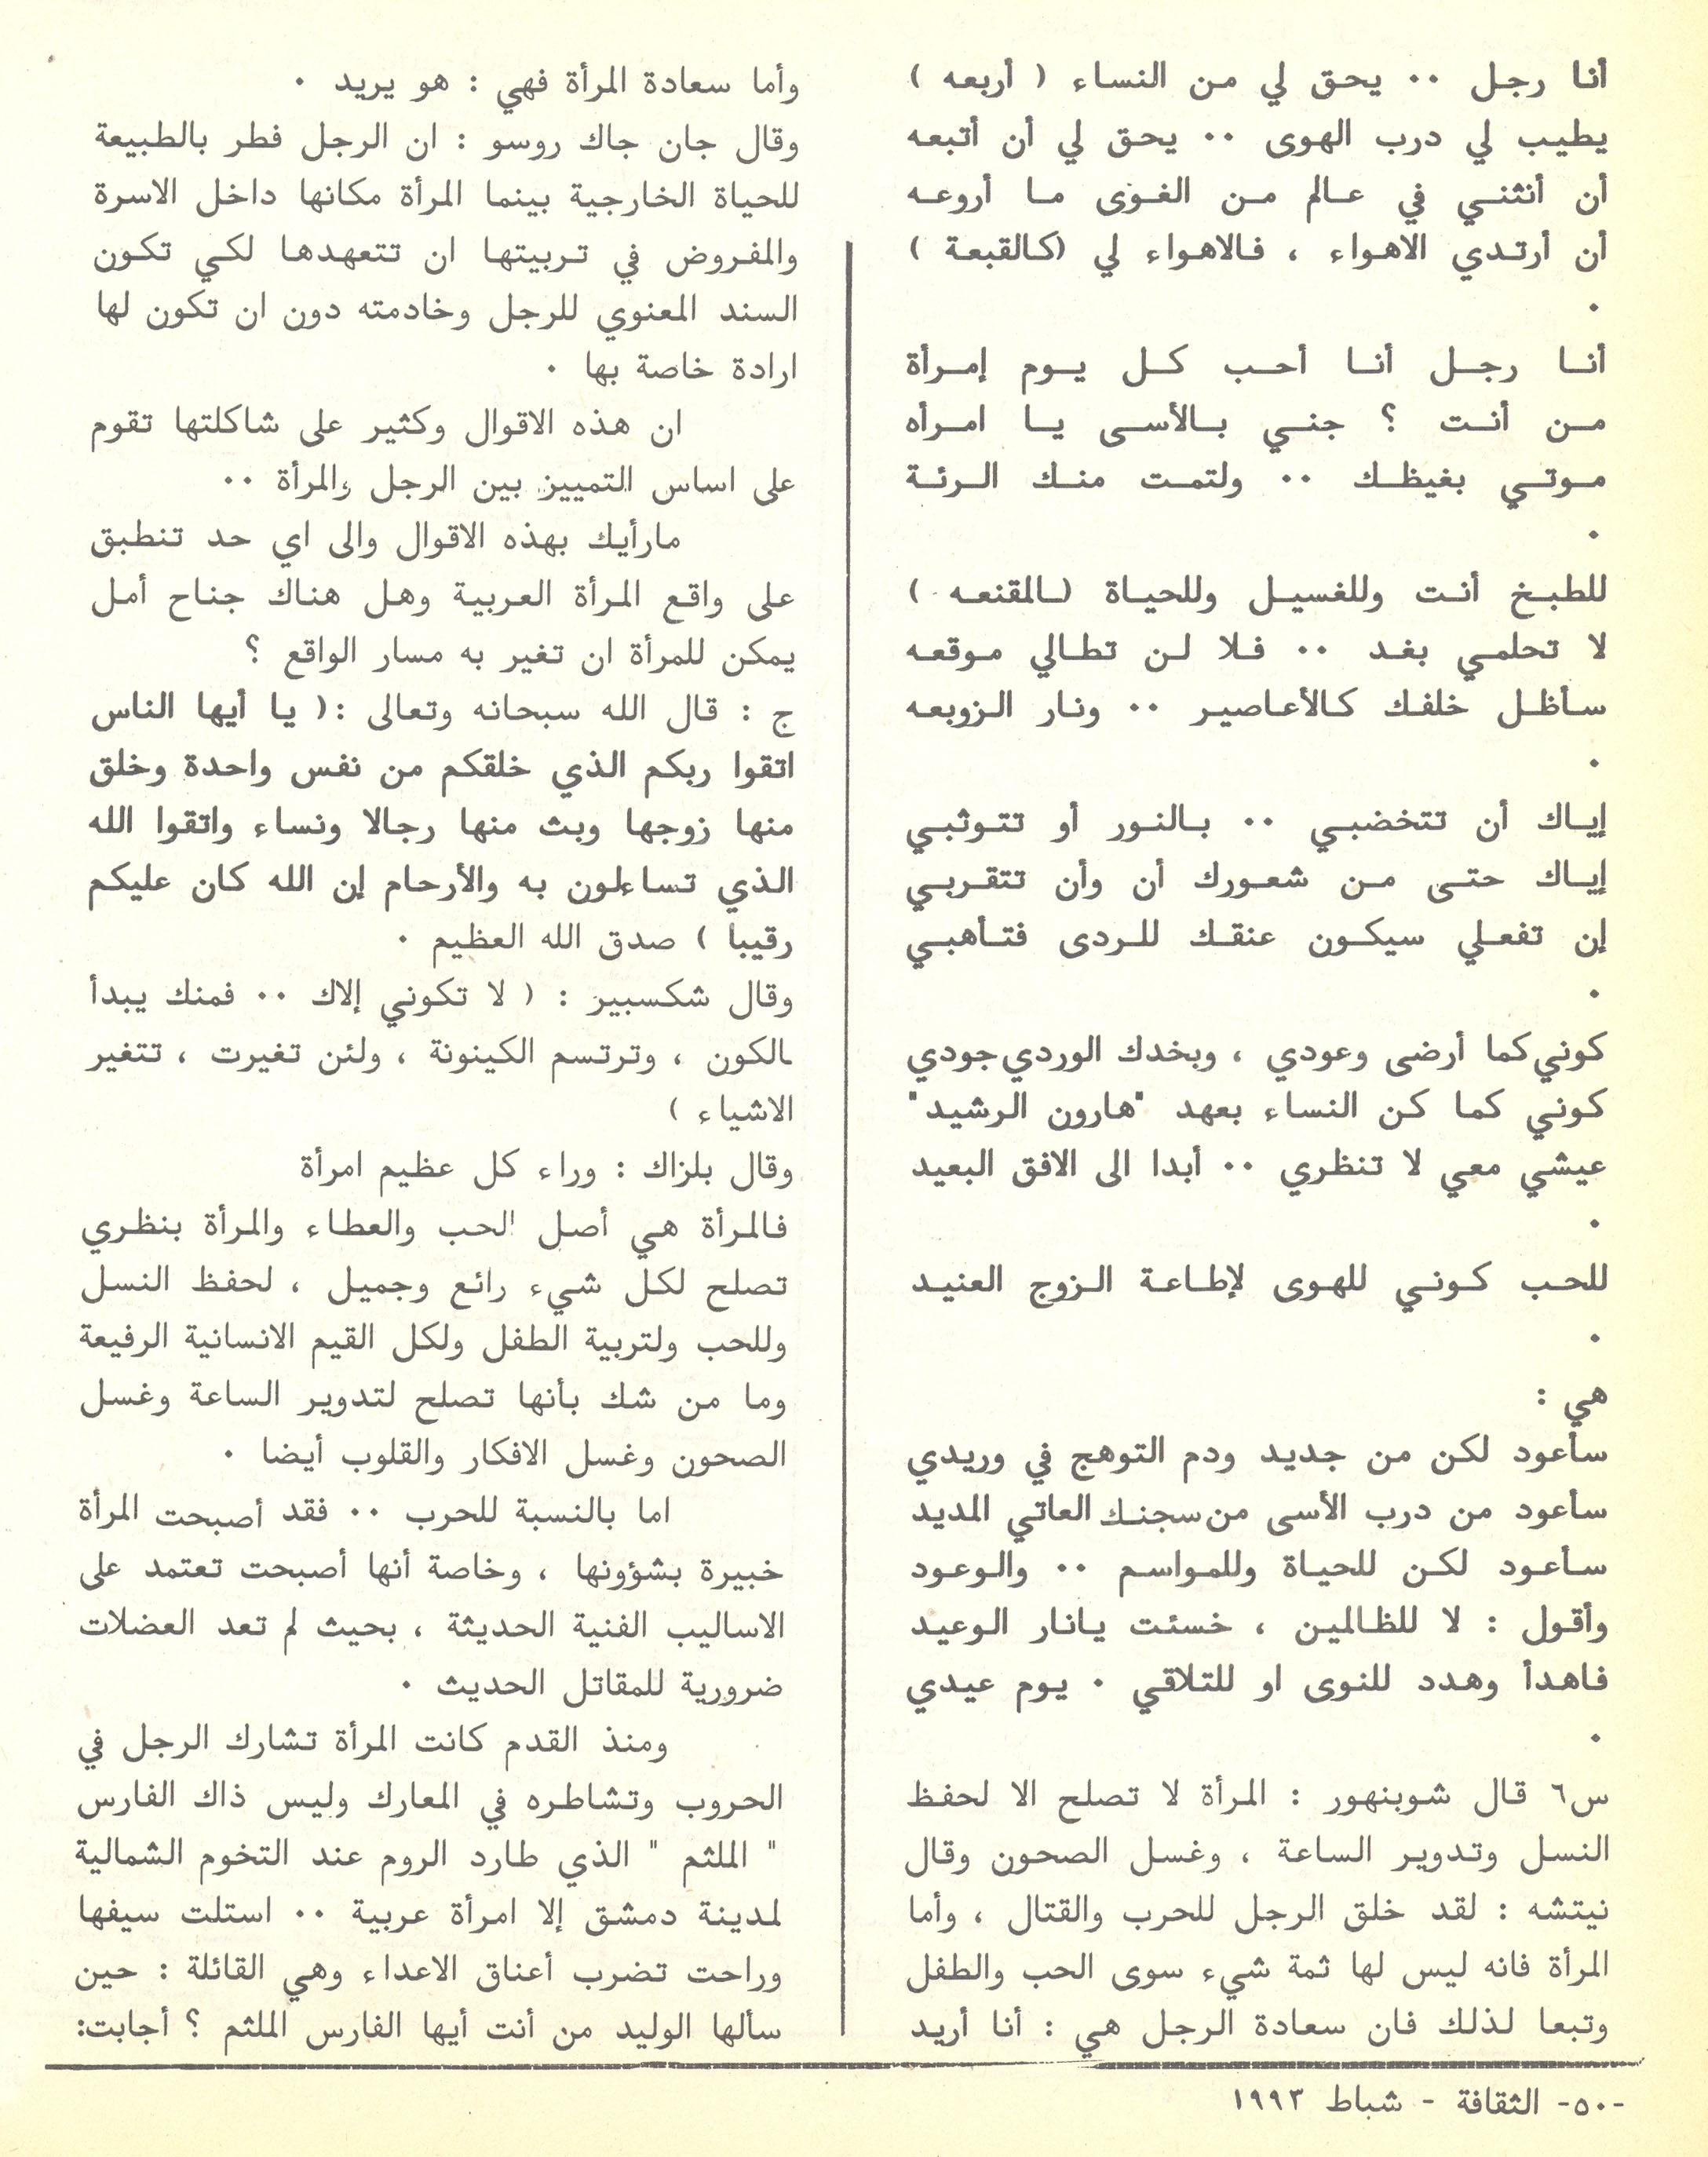 أنا رجل ٠٠ يحق لي من النساء ( أربعه )
يطيب لي درب الهوى ٠٠ يحق لي أن أتبعه
أن أنثني في عالم من الغوى ما أروعه
أن أرتدي الاهواء ، فالاهواء لي (كالقبعة )
٠
أنا رجل أنا أحب كل يوم إمرأة
من أنت ؟ جني بالأسى يا امرأه
موتي بغيظك ٠٠ ولتمت منك الرئة
٠
للطبخ أنت وللغسيل وللحياة (بالمقنعه )
لا تحلمي بغد ٠٠ فلا لن تطالي موقعه
سأظل خلفك كالأعاصير ٠٠ ونار الزوبعه
٠
إياك أن تتخضبي ٠٠ بالنور أو تتوثبي
إياك حتى من شعورك أن وأن تتقربي
إن تفعلي سيكون عنقك للردى فتأهبي
٠
كوني كما أرضى وعودي ، وبخدك الوردي جودي
كوني كما كن النساء بعهد "هارون الرشيد"
عيشي معي لا تنظري ٠٠ أبدا الى الافق البعيد
٠
للحب كوني للهوى لإطاعة الزوج العنيد
٠
هي :
سأعود لكن من جديد ودم التوهج في وريدي
سأعود من درب الأسى من سجنك العاتي المديد
سأعود لكن للحياة وللمواسم ٠٠ والوعود
وأقول : لا للظالمين ، خسئت يانار الوعيد
فاهدأ وهدد للنوى او للتلاقي ٠ يوم عيدي
٠
س٦ قال شوبنهور : المرأة لا تصلح الا لحفظ
النسل وتدوير الساعة ، وغسل الصحون وقال
نيتشه : لقد خلق الرجل للحرب والقتال ، وأما
المرأة فانه ليس لها ثمة شيء سوى الحب والطفل
وتبعا لذلك فان سعادة الرجل هي : أنا أريد
وأما سعادة المرأة فهي : هو يريد ٠
وقال جان جاك روسو : ان الرجل فطر بالطبيعة
للحياة الخارجية بينما المرأة مكانها داخل الاسرة
والمفروض في تربيتها ان تتعهدها لكي تكون
السند المعنوي للرجل وخادمته دون ان تكون لها
ارادة خاصة بها ٠
ان هذه الاقوال وكثير على شاكلتها تقوم
على اساس التمييز بين الرجل والمرأة ٠٠
مارأيك بهذه الاقوال والى اي حد تنطبق
على واقع المرأة العربية وهل هناك جناح أمل
يمكن للمرأة ان تغير به مسار الواقع ؟
ج : قال الله سبحانه وتعالى :( يا أيها الناس
اتقوا ربكم الذي خلقكم من نفس واحدة وخلق
منها زوجها وبث منها رجالا ونساء واتقوا الله
الذي تساءلون به والأرحام إن الله كان عليكم
رقيبا ) صدق الله العظيم ٠
وقال شكسبير : ( لا تكوني إلاك ٠٠ فمنك يبدأ
الكون ، وترتسم الكينونة ، ولئن تغيرت ، تتغير
الاشياء )
وقال بلزاك : وراء كل عظيم امرأة
فالمرأة هي أصل الحب والعطاء والمرأة بنظري
تصلح لكل شيء رائع وجميل ، لحفظ النسل
وللحب ولتربية الطفل ولكل القيم الانسانية الرفيعة
وما من شك بأنها تصلح لتدوير الساعة وغسل
الصحون وغسل الافكار والقلوب أيضا ٠
اما بالنسبة للحرب ٠٠ فقد أصبحت المرأة
خبيرة بشؤونها ، وخاصة أنها أصبحت تعتمد على
الاساليب الفنية الحديثة ، بحيث لم تعد العضلات
ضرورية للمقاتل الحديث ٠
ومنذ القدم كانت المرأة تشارك الرجل في
الحروب وتشاطره في المعارك وليس ذاك الفارس
" الملثم " الذي طارد الروم عند التخوم الشمالية
لمدينة دمشق إلا امرأة عربية ٠٠ استلت سيفها
وراحت تضرب أعناق الاعداء وهي القائلة : حين
سألها الوليد من أنت أيها الفارس الملثم ؟ أجابت:
-٥٠- الثقافة - شباط ١٩٩٣